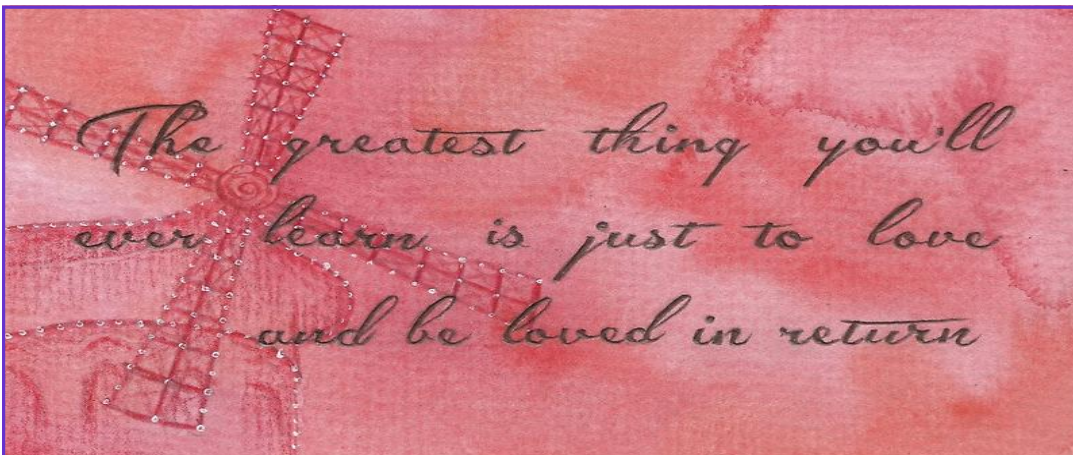 The greatest thing you'll
ever learn is just to love
and be loved in return